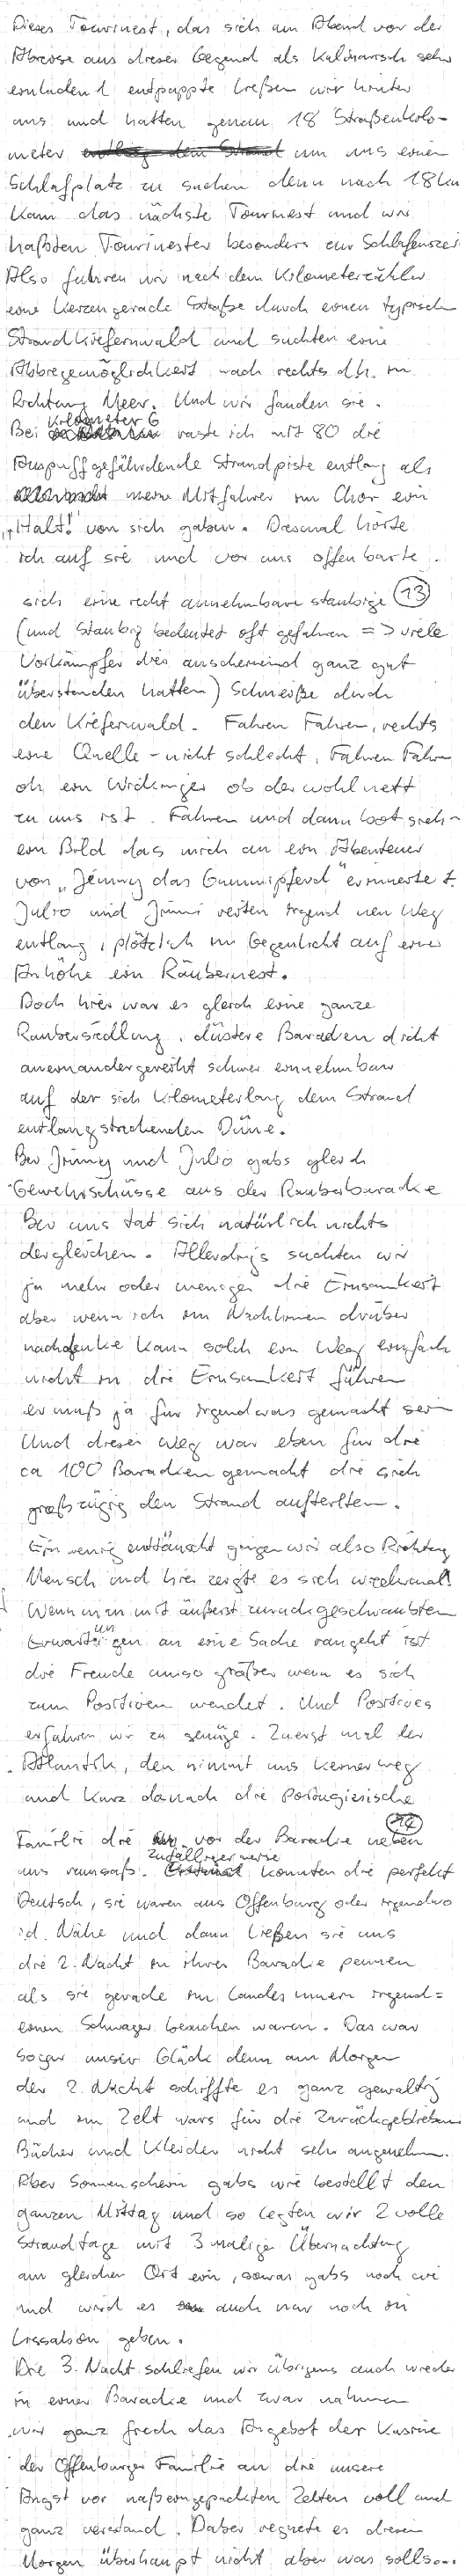 Dieses Tourinest, das sich am Abend vor der
Abreise aus dieser Gegend als kulinarisch sehr
einladend entpuppte ließen wir hinter
uns und hatten genau 18 Straßenkilo-
meter um uns einen
Schlafplatz zu suchen denn nach 18 km
kam das nächste Tourinest und wir
haßten Tourinester besonders zur Schlafenszeit
Also fuhren wir nach dem Kilometerzähler
eine kerzengerade Straße durch einen typischen
Strandkiefernwald und suchten eine
Abbiegemöglichkeit nach rechts d.h. in
Richtung Meer. Und wir fanden sie.
Bei Kilometer 6 raste ich mit 80 die
Auspuffgefährdende Strandpiste entlang als
meine Mitfahrer im Chor ein
"Halt!" von sich gaben. Diesmal hörte
ich auf sie und vor uns offenbarte
sich eine recht annehmbare staubige (13)
(und staubig bedeutet oft gefahren => viele
Vorkämpfer die's anscheinend ganz gut
überstanden hatten) Schneiße durch
den Kiefernwald. Fahren Fahren, rechts
eine Quelle - nicht schlecht, Fahren Fahren
oh ein Wickinger ob der wohl nett
zu uns ist. Fahren und dann bot sich
ein Bild das mich an ein Abenteuer
von "Jimmy das Gummipferd" erinnerte.
Julio und Jimmi reiten irgend nen Weg
entlang, plötzlich im Gegenlicht auf einer
Anhöhe ein Räubernest.
Doch hier war es gleich eine ganze
Räubersiedlung, düstere Baracken dicht
aneinandergereiht schwer einnehmbar
auf der sich kilometerlang dem Strand
entlangstreckenden Düne.
Bei Jimmy und Julio gabs gleich
Gewehrschüsse aus der Räuberbaracke
Bei uns tat sich natürlich nichts
dergleichen. Allerdings suchten wir
ja mehr oder weniger die Einsamkeit
aber wenn ich im Nachhinein drüber
nachdenke kann solch ein Weg einfach
nicht in die Einsamkeit führen
er muß ja für irgendwas gemacht sein
Und dieser Weg war eben für die
ca 100 Baracken gemacht die sich
großzügig den Strand aufteilten.
Ein wenig enttäuscht gingen wir also Richtung
Mensch und hier zeigte es sich wiedermal!
Wenn man mit äußerst zurückgeschraubten
Erwartungen an eine Sache rangeht ist
die Freude umso größer wenn es sich
zum Positiven wendet. Und Positives
erfahren wir zu genüge. Zuerst mal der
Atlantik, den nimmt uns keiner weg
und kurz danach die Portugiesische
(14)
Familie die vor der Baracke neben
uns rumsaß. Zufälligerweise konnten die perfekt
Deutsch, sie waren aus Offenburg oder irgendwo
i.d. Nähe und dann ließen sie uns
die 2. Nacht in ihrer Baracke pennen
als sie gerade im Landesinnern irgend=
einen Schwager besuchen waren. Das war
sogar unser Glück denn am Morgen
der 2. Nacht schiffte es ganz gewaltig
und im Zelt wars für die Zurückgebliebenen
Bücher und Kleider nicht sehr angenehm.
Aber Sonnenschein gabs wie bestellt den
ganzen Mittag und so legten wir 2 volle
Strandtage mit 3maliger Übernachtung
am gleichen Ort ein, sowas gabs noch nie
und wird es auch nur noch in
Lissabon geben.
Die 3. Nacht schliefen wir übrigens auch wieder
in einer Baracke und zwar nahmen
wir ganz frech das Angebot der Kusine
der Offenburger Familie an die unsere
Angst vor naßeingepackten Zelten voll und
ganz verstand. Dabei regnete es diesen
Morgen überhaupt nicht aber was solls...